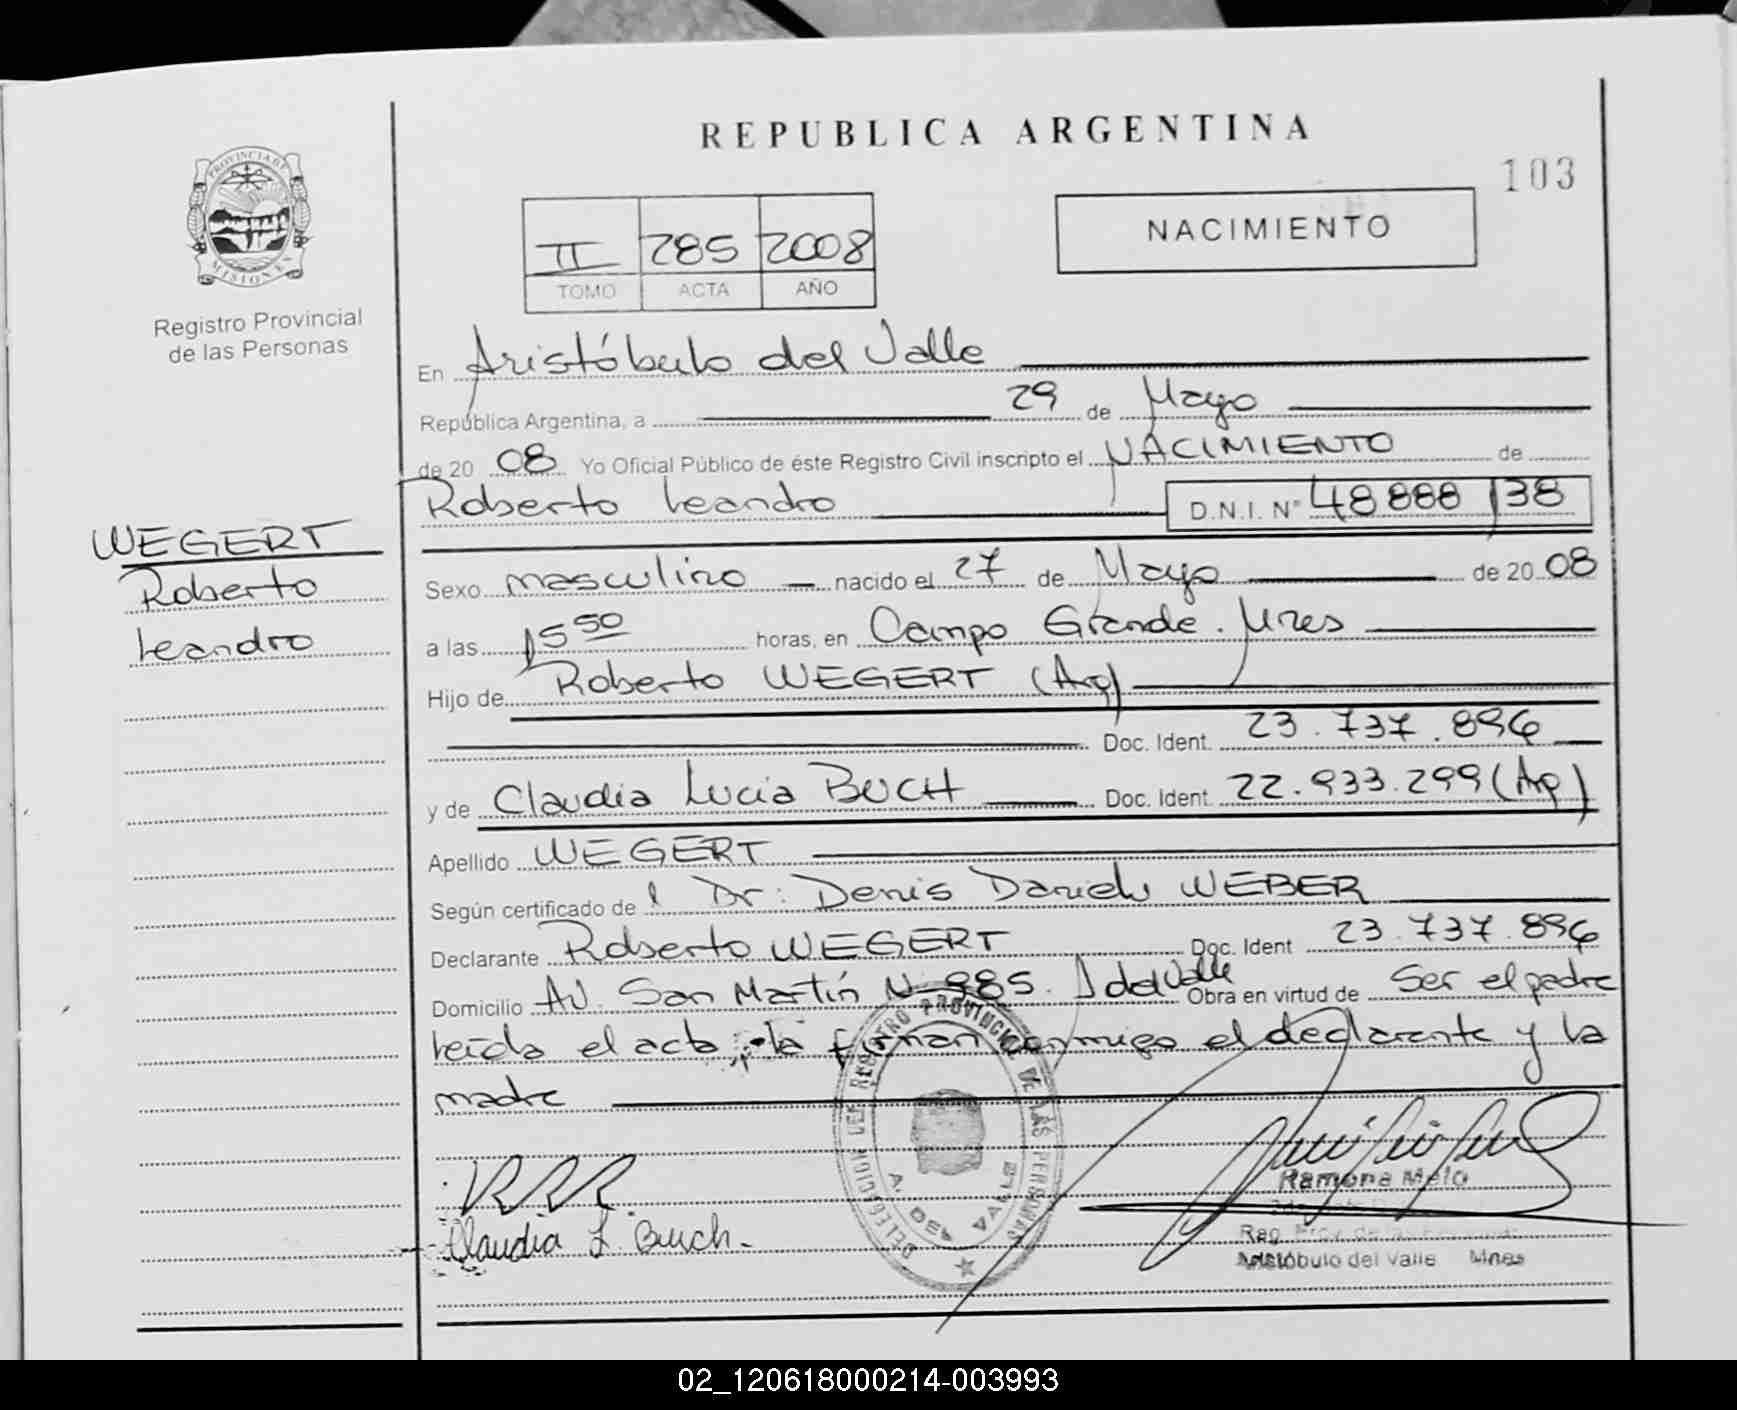 REPUBLICA ARGENTINA
103
PROVINCIA DE
MISIONES
Registro Provincial
de las Personas
II 285 2008
TOMO ACTA AÑO
NACIMIENTO
En Aristóbulo del Valle
República Argentina, a 29 de Mayo
de 20 08 Yo Oficial Público de éste Registro Civil inscripto el NACIMIENTO de
Roberto Leandro D.N.I. Nº 48 888 138
WEGERT
Roberto
Leandro
Sexo masculino nacido el 27 de Mayo de 20 08
a las 15 50 horas, en Campo Grande. Mnes
Hijo de Roberto WEGERT (Arg)
Doc. Ident. 23.737.896
y de Claudia Lucia BUCH Doc. Ident. 22.933.299 (Arg)
Apellido WEGERT
Según certificado de l Dr: Denis Daniel WEBER
Declarante Roberto WEGERT Doc. Ident 23.737.896
Domicilio Av. San Martín Nº 985. A del Valle Obra en virtud de Ser el padre
leída el acta, la firman conmigo el declarante y la
madre
DELEGACION DEL REGISTRO PROVINCIAL DE LAS PERSONAS
A. DEL VALLE
Claudia L. Buch.
Ramona Melo
Reg. Prov. de las Personas
Aristóbulo del Valle Mnes
02_120618000214-003993